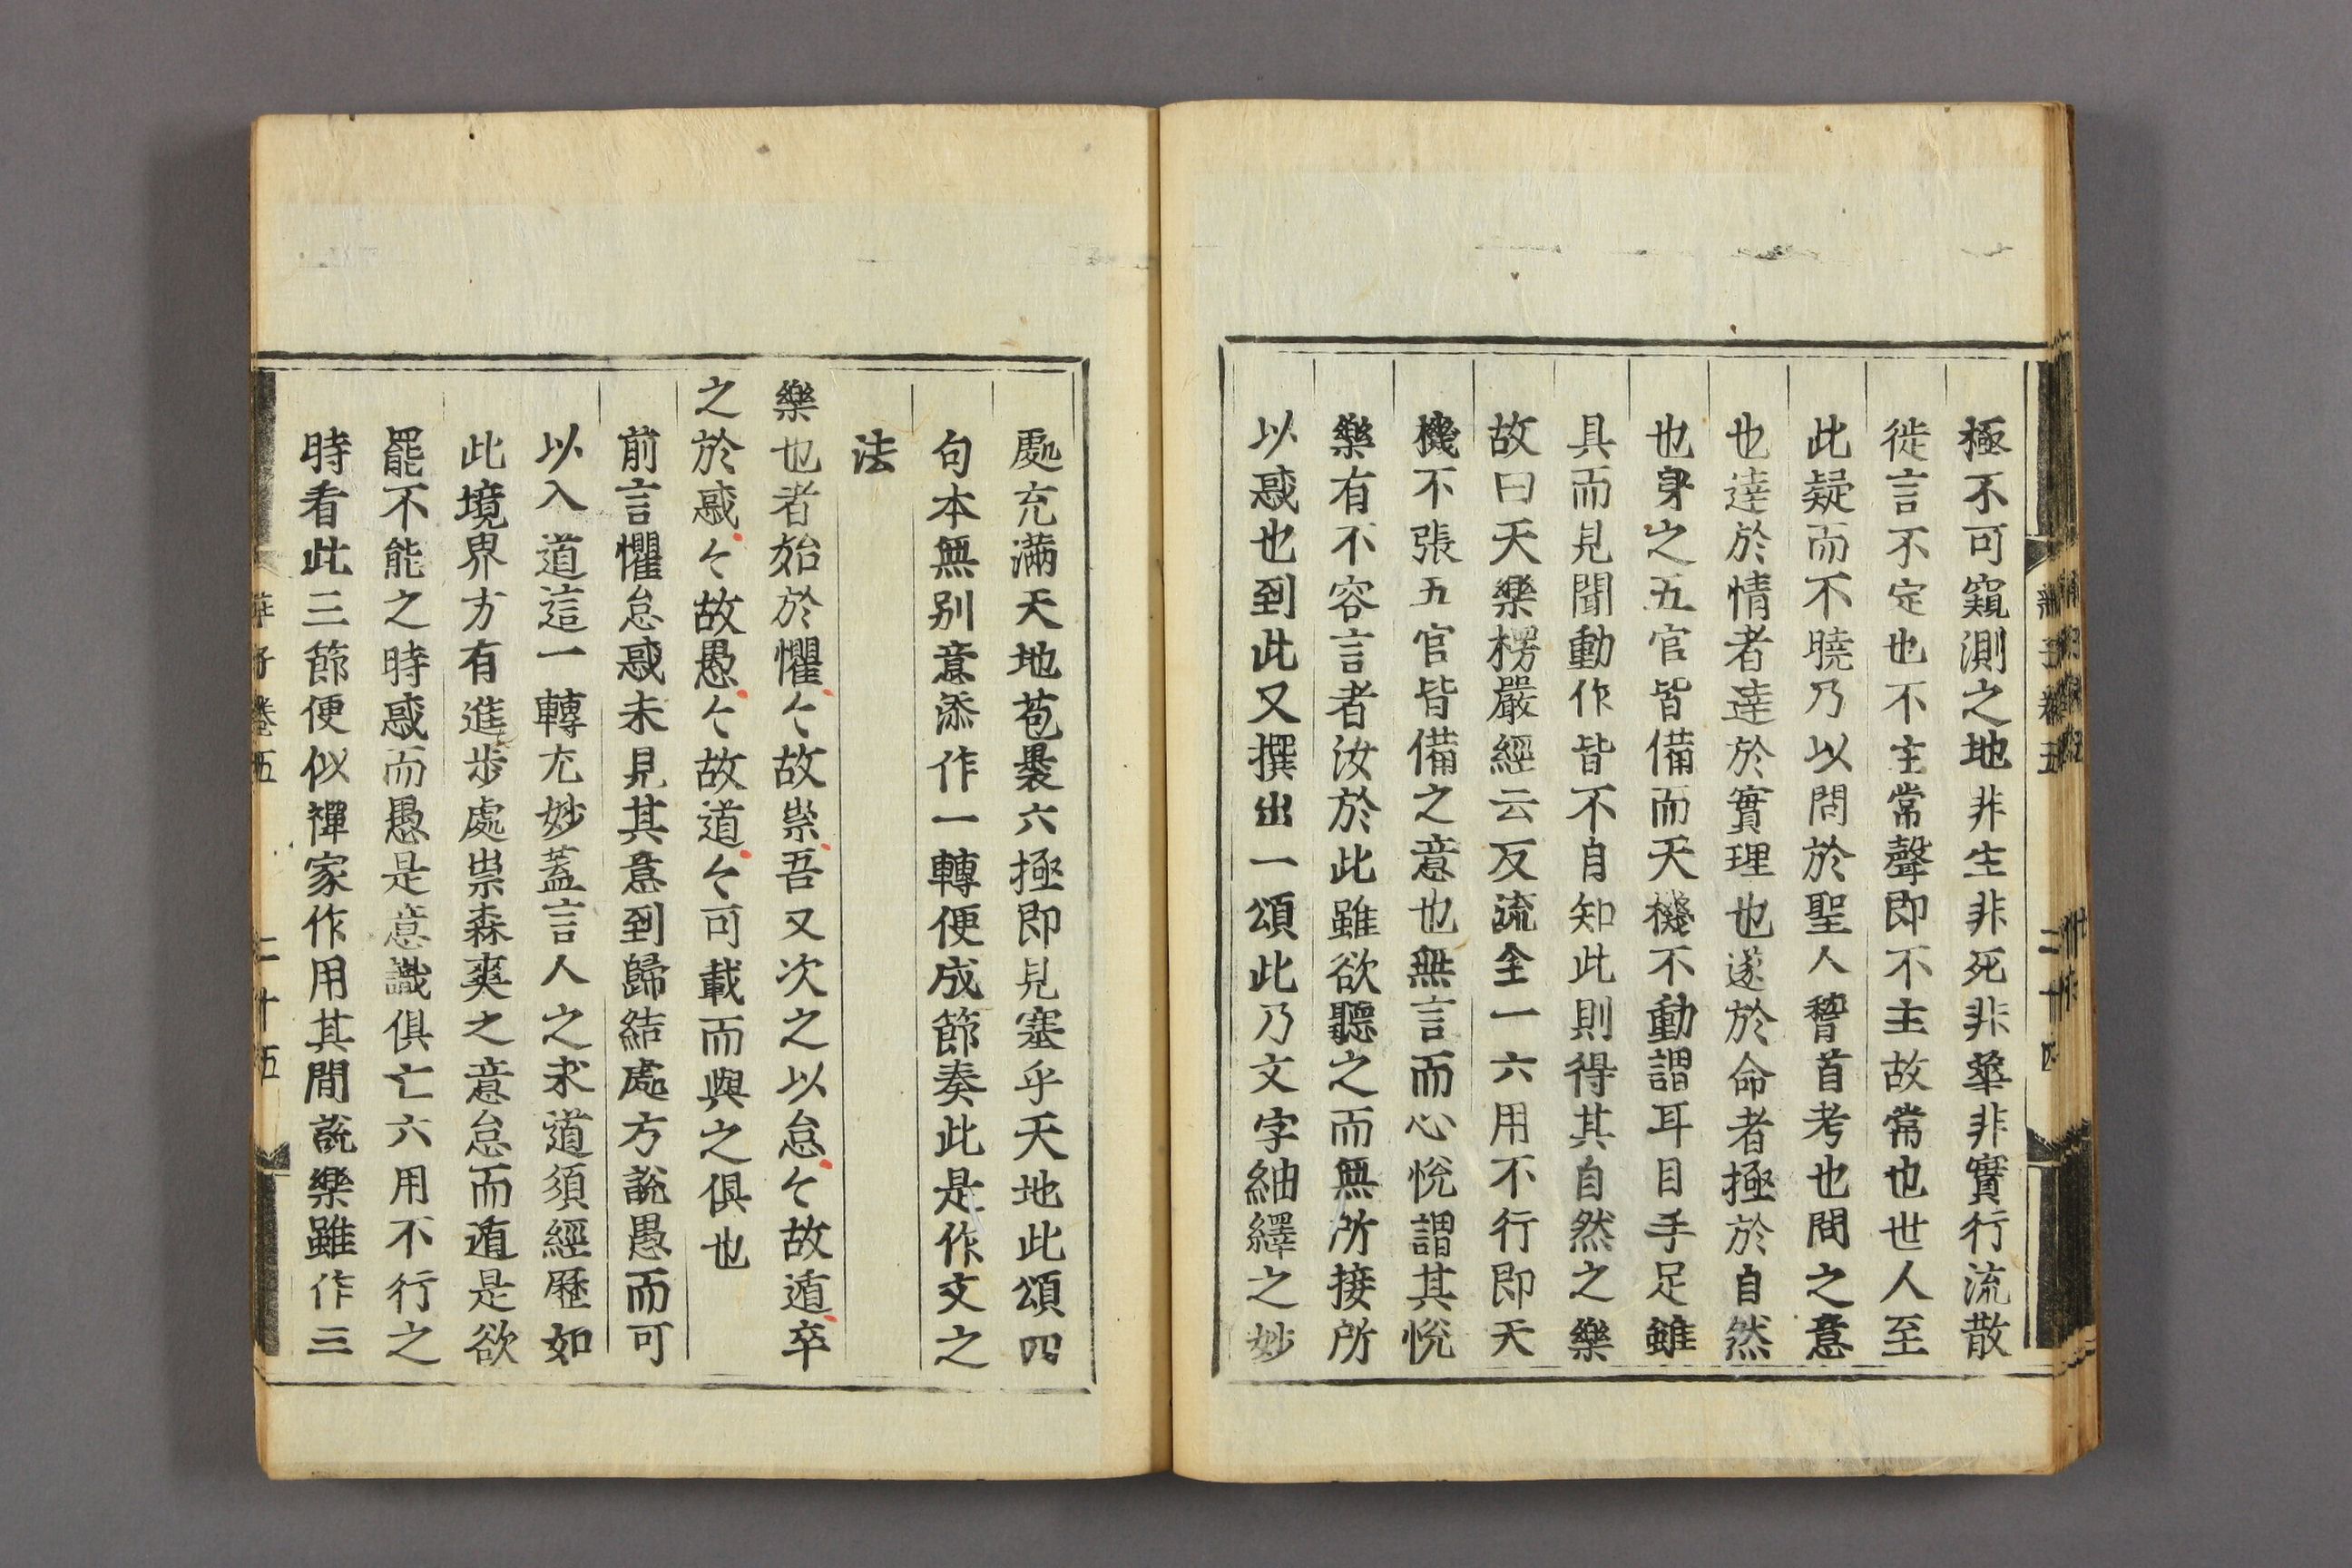 極不可窺測之地非生非死非華非實行流散
徙言不定也不主常聲即不主故常也世人至
此疑而不曉乃以問於聖人稽首考也問之意
也達於情者達於實理也遂於命者極於自然
也身之五官皆備而天機不動謂耳目手足雖
具而見聞動作皆不自知此則得其自然之樂
故曰天樂楞嚴經云反流全一六用不行即天
機不張五官皆備之意也無言而心悅謂其悅
樂有不容言者汝於此雖欲聽之而無所接所
以惑也到此又撰出一頌此乃文字紬繹之妙
處充滿天地苞褁六極即見塞乎天地此頌四
句本無別意添作一轉便成節奏此是作文之
法
樂也者始於懼〻故祟吾又次之以怠〻故遁卒
之於惑〻故愚〻故道〻可載而與之俱也
前言懼怠惑未見其意到歸結處方說愚而可
以入道這一轉尤妙蓋言人之求道須經歷如
此境界方有進步處祟森爽之意怠而遁是欲
罷不能之時惑而愚是意識俱亡六用不行之
時看此三節便似禪家作用其間說樂雖作三
莊子卷五
二十五